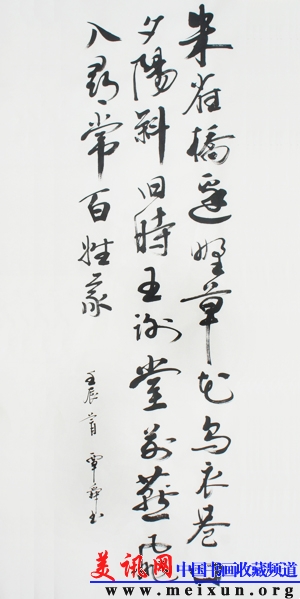 朱雀橋邊野草花烏衣巷口
夕陽斜旧時王谢堂前燕飛
入尋常百姓家
壬辰 覃 书
美讯网 中国书画收藏频道
www.meixun.org